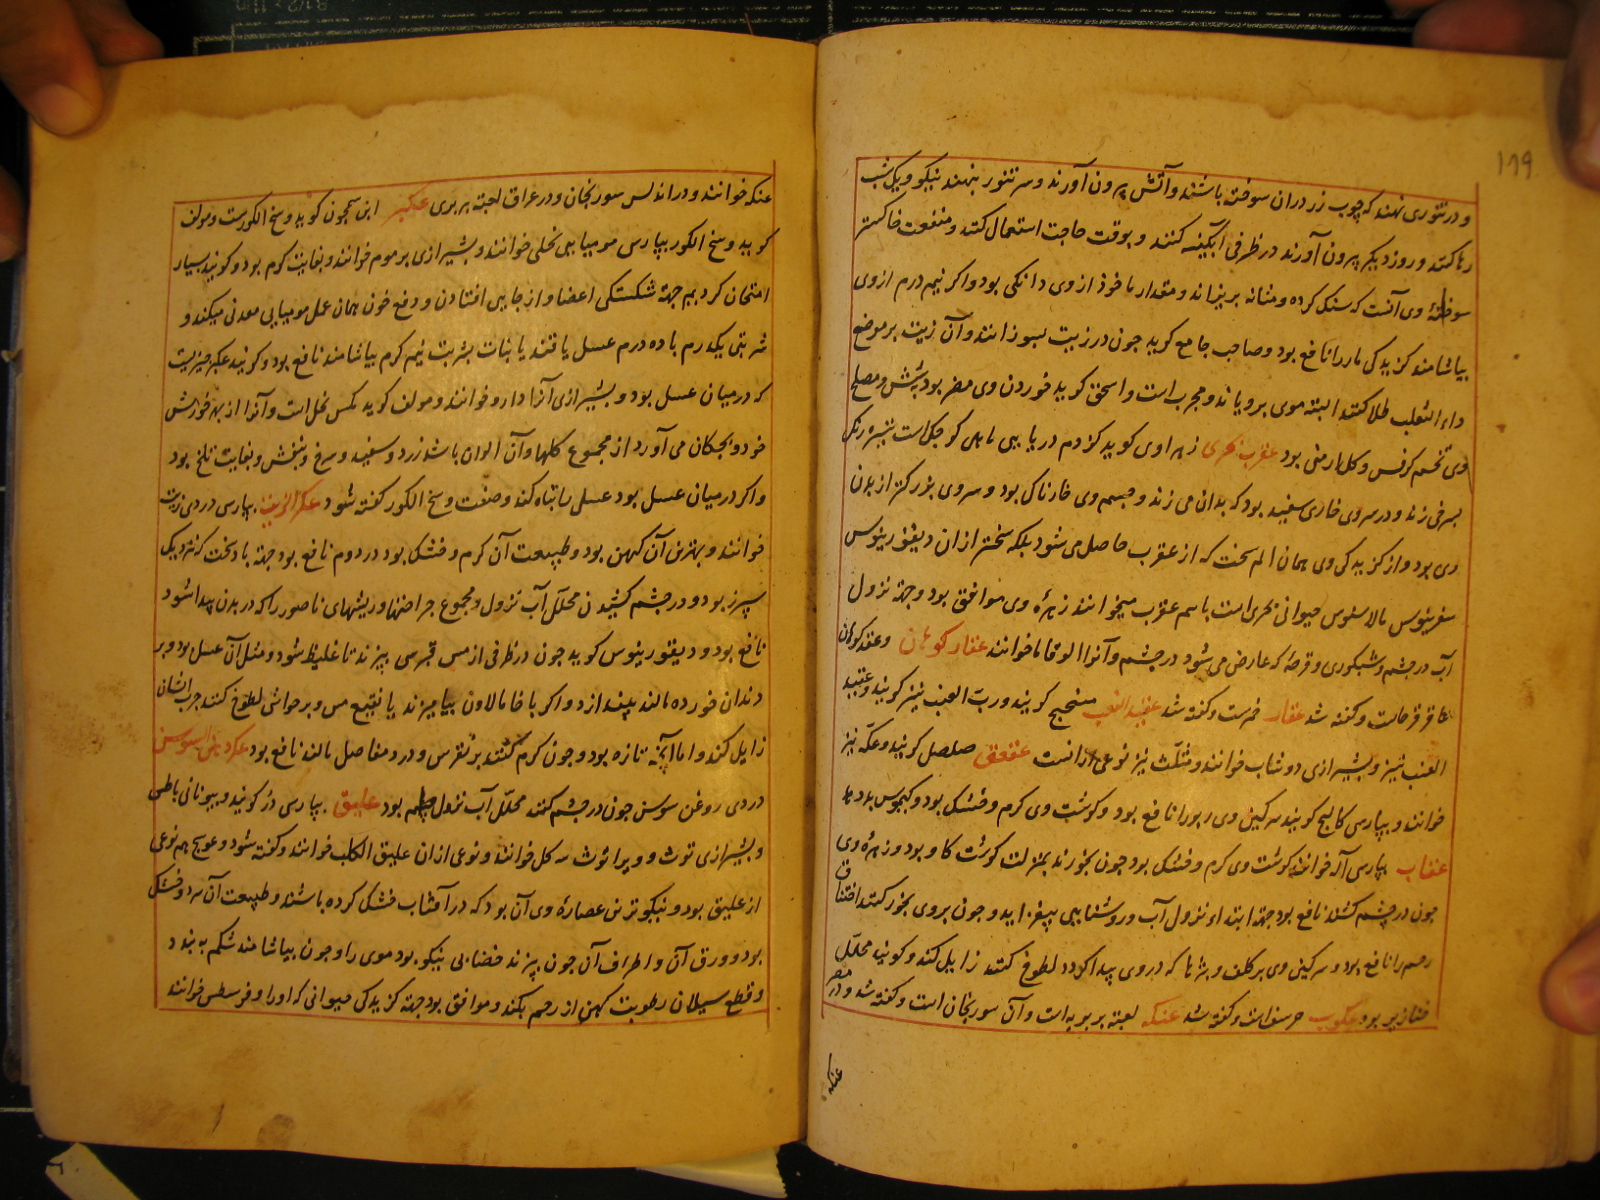 ۱۹۹
و در تنوری نهند که چوب زر دران سوخته باشند و آتش بیرون آورند و سر تنور بنهند نیکو و یک شب
رها کنند و روز دیگر بیرون آورند در ظرفی آبگینه کنند و بوقت حاجت استعمال کنند و منفعت خاکستر
سوخته وی آنست که سنک کرده و مثانه بریزاند و مقدار ماخوذ از وی دانکی بود و اکر نیم درم از وی
بیاشامند کزیدکی مار را نافع بود و صاحب جامع کوید چون در زیت بسوزانند و آن زیت بر موضع
داء الثعلب طلا کنند البته موی برویاند و مجرب است و اسحق کوید خوردن وی مضر بود بشش و مصلح
وی تخم کرفس و کل ارمنی بود عقرب بحری زهراوی کوید کزدم دریایی ماهی کوچک است تیره رنک
بسرخی زند و در سر وی خاری سفید بود که بدان می زند و جسم وی خارناک بود و سر وی بزرکتر از بدن
وی بود و از کزیدکی وی همان الم سخت که از عقرب حاصل می شود بلکه سختر ازان دیقوریدوس
سقرنیوس مالاسنوس حیوانی بحری است باسم عقرب میخوانند زهره وی موافق بود و جهة نزول
آب در چشم و شبکوری و قرحه که عارض می شود در چشم و آنرا الوقاما خوانند عقار کوهان و عقد کوهان
عاقرقرحاست و کفته شد عقار خمرست و کفته شد عقید العنب میبختج کویند و رب العنب نیز کویند و عقید
العنب نیز و بشیرازی دوشاب خوانند و مثلث نیز نوعی ازانست عقعق صلصل کویند و عکه نیز
خوانند و بپارسی کالنج کویند سرکین وی ربو را نافع بود و کوشت وی کرم و خشک بود و کیموس بد دهد
عقاب بپارسی آله خوانند کوشت وی کرم و خشک بود چون بخورند بمنزلت کوشت کاو بود و زهره وی
چون در چشم کشند نافع بود جهة ابتداء نزول آب و روشنایی بیفزاید و چون بروی بخور کنند اختناق
رحم را نافع بود و سرکین وی بر کلف و بثرها که در روی پیدا کردد لطوخ کنند زایل کند و کویند محلل
خنازیر بود عکوب حرشف است و کفته شد عنکه لعبة بربریه است و آن سورنجان است و کفته شد و در مصر
عنکه
عنکه خوانند و در اندلس سورنجان و در عراق لعبة بربری عکبر ابن سمجون کوید وسخ الکورست و مولف
کوید وسخ الکور بپارسی مومیایی نحلی خوانند و بشیرازی برموم خوانند و بغایت کرم بود و کویند بسیار
امتحان کردیم جهة شکستکی اعضا و از جایی افتادن و دفع خون همان عمل مومیایی معدنی میکند و
شربتی یکدرم با ده درم عسل یا قند یا نبات بشربت نیم کرم بیاشامند نافع بود و کویند عکبر چیزیست
که در میان عسل بود و بشیرازی آنرا دارو خوانند و مولف کوید مکس نحل است و آنرا از بهر خورش
خود و بچکان می آورد از مجموع کلها و آن الوان باشد زرد و سفید و سرخ و بنفش و بغایت تلخ بود
و اکر در میان عسل بود عسل را تباه کند و صفت وسخ الکور کفته شود عکر الزیت بپارسی دردی زیت
خوانند و بهترین آن کهن بود و طبیعت آن کرم و خشک بود در دوم نافع بود جهة باد سخت که نزدیک
سپرز بود و در چشم کشیدن محلل آب نزول و مجموع جراحتها و ریشهای ناصور را که در بدن پیدا شود
نافع بود و دیقوریدوس کوید چون در ظرفی از مس قبرسی بپزند تا غلیظ شود و مثل آن عسل بود و بر
دندان خورده مالند بیندازد و اکر با خامالاون بیامیزند یا نقیع مس و بر حواشی لطوخ کنند جرب ایشان
زایل کند و اما آنچه تازه بود و چون کرم کنند بر نقرس و درد مفاصل مالند نافع بود عکر دهن السوسن
دردی روغن سوسن چون در چشم کنند محلل آب نزول چشم بود علیق بپارسی در کویند و بیونانی باطس
و بشیرازی توث و ویرا توث سه کل خوانند و نوعی ازان علیق الکلب خوانند و کفته شود و عوسج هم نوعی
از علیق بود و نیکوترین عصاره وی آن بود که در آفتاب خشک کرده باشند و طبیعت آن سرد و خشک
بود و ورق آن و اطراف آن چون بپزند خضابی نیکو بود موی را و چون بیاشامند شکم ببندد و
و قطع سیلان رطوبت کهن از رحم بکند و موافق بود جهة کزیدکی حیوانی که اورا وفرسطس خوانند